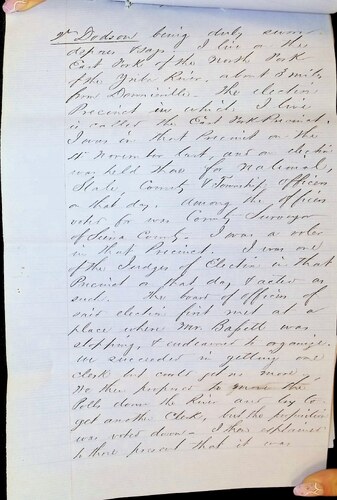 Wm Dodson being duly sworn
deposes & says. I live on the
East Fork of the North Fork
of the Yuba River, about 8 miles
from Downieville. The election
Precinct in which I live
is called the East Fork Precinct.
I was in that Precinct on the
4th November last, and an election
was held then for National,
State, County & Township officers
on that day. Among the officers
voted for was County Surveyor
of Sierra County. I was a voter
in that Precinct. I was one
of the Judges of Election in that
Precinct on that day, & acted as
such. The board of officers of
said election first met at a
place where Mr. was
stopping, & endeavored to organize.
We succeeded in getting one
clerk but could get no more.
No then proposed to move the
Polls down the River and try to
get another Clerk, but the proposition
was voted down. I then explained
to those present that it was